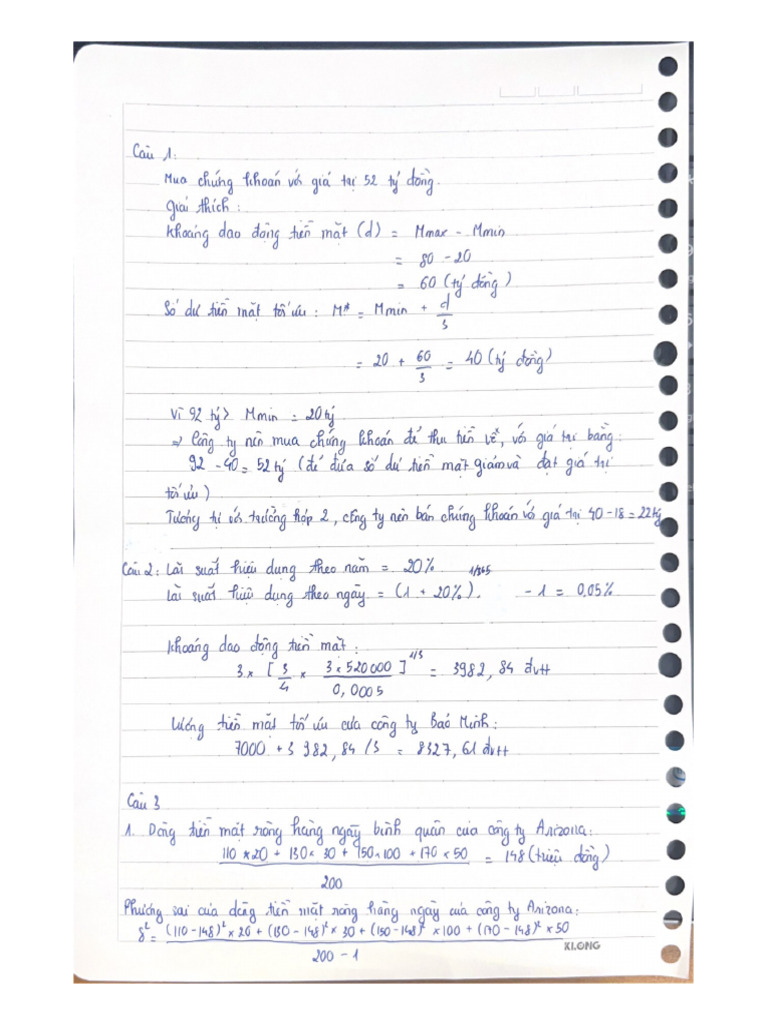 Câu 1:
Mua chứng khoán với giá trị 52 tỷ đồng.
Giải thích:
Khoảng dao động tiền mặt (d) = Mmax - Mmin
= 80 - 20
= 60 (tỷ đồng)
Số dư tiền mặt tối ưu: M* = Mmin + d/3
= 20 + 60/3 = 40 (tỷ đồng)
Vì 92 tỷ > Mmin = 20 tỷ
=> Công ty nên mua chứng khoán để thu tiền về, với giá trị bằng:
92 - 40 = 52 tỷ (để đưa số dư tiền mặt giảm và đạt giá trị
tối ưu)
Tương tự với trường hợp 2, công ty nên bán chứng khoán với giá trị 40 - 18 = 22 tỷ
Câu 2: Lãi suất hiệu dụng theo năm = 20%
Lãi suất hiệu dụng theo ngày = (1 + 20%)^1/365 - 1 = 0,05%
Khoảng dao động tiền mặt:
3 x [3/4 x 3 x 520000/0,0005]^1/3 = 3982,84 đvtt
Lượng tiền mặt tối ưu của công ty Bảo Minh:
7000 + 3982,84 / 3 = 8327,61 đvtt
Câu 3
1. Dòng tiền mặt ròng hàng ngày bình quân của công ty Arizona:
110 x 20 + 130 x 30 + 150 x 100 + 170 x 50 = 148 (triệu đồng)
200
Phương sai của dòng tiền mặt ròng hàng ngày của công ty Arizona:
δ² = (110 - 148)² x 20 + (130 - 148)² x 30 + (150 - 148)² x 100 + (170 - 148)² x 50
200 - 1
KLONG